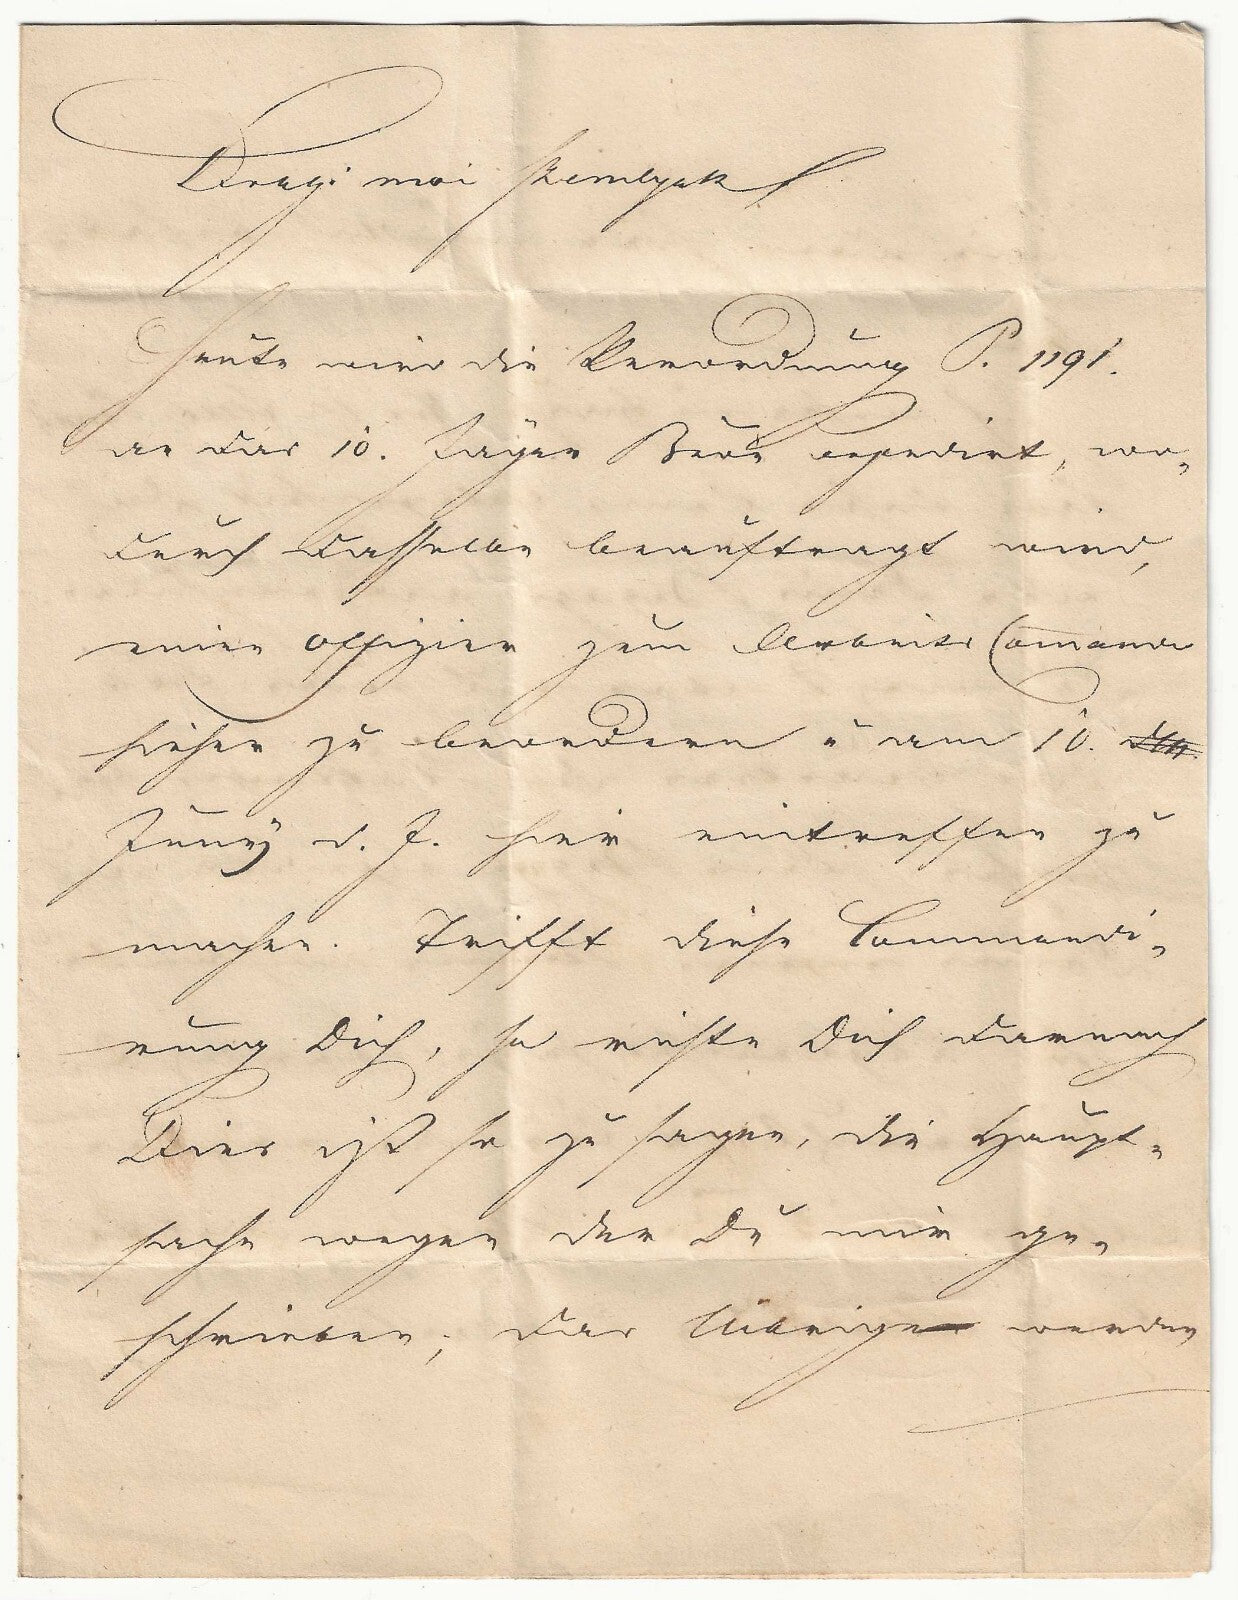 Dragi moi Kemlyak
Heute wird die Verordnung P. 1191.
an das 10. Jäger Baon expedirt, wo-
durch dasselbe beauftragt wird,
einen Offizier zum Arbeits Comando
hieher zu beordern u am 10.
Juny d. J. hier eintreffen zu
machen. Trifft diese Commandi-
rung Dich, so richte Dich darnach
Dies ist so zu sagen, die Haupt-
sache wegen der Du mir ge-
schrieben; das Übrige werden